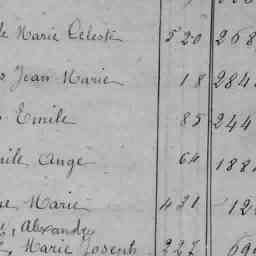 Marie Céleste 520 268
Jean Marie 18 284
Emile 85 244
Ange 64 188
Marie 431 12
Alexandre
Marie Joseph 227 69